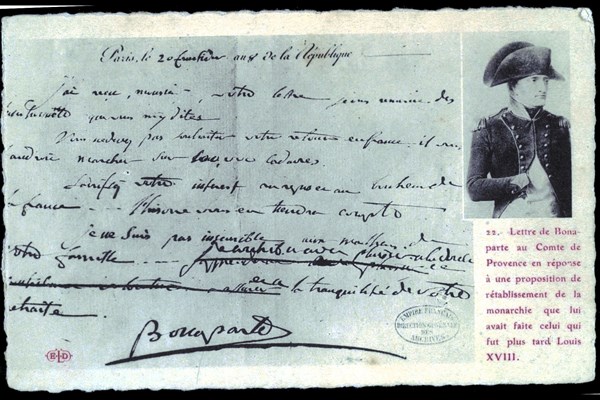 Paris, le 20 fructidor an 8 de la République
j'ai reçu, monsieur, votre lettre je vous remercie des
que vous m'y dites
Vous ne devez pas souhaiter votre retour en france il vous
marcher sur 100,000 cadavres.
votre intérêt au repos et au bonheur de
la france - l'histoire vous en tiendra compte
je ne suis pas insensible aux malheurs de
votre famille
la tranquilité de votre
retraite.
Bonaparte
EMPIRE FRANÇAIS
DIRECTION GÉNÉRALE
DES
ARCHIVES
ELD
22.- Lettre de Bona-
parte au Comte de
Provence en réponse
à une proposition de
rétablissement de la
monarchie que lui
avait faite celui qui
fut plus tard Louis
XVIII.